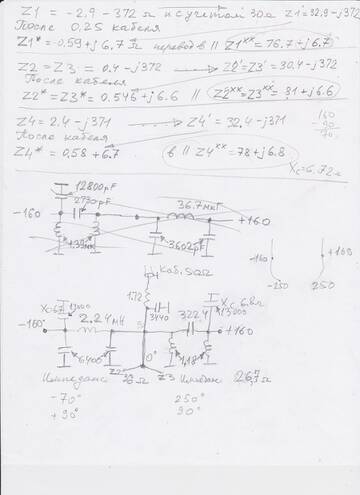 Z1 = -2,9 - 372 Ω и с учетом 30Ω Z1' = 32,9 - j372
После 0,25 кабеля
Z1* = -0,59 + j6.7 Ω перевод в // Z1** = 76.7 + j6.7
Z2 = Z3 = 0.4 - j372 → Z2' = Z3' = 30.4 - j372
После кабеля
Z2* = Z3* = 0.546 + j6.6 // Z2** = Z3** = 81 + j6.6
Z4 = 2.4 - j371 → Z4' = 32.4 - j371
После кабеля
Z4* = 0.58 + 6.7 в // Z4** = 78 + j6.8
160
90
70
Xc = 6.72Ω
12800pF
2730pF
36.7мкГ
-160
+160
3602pF
-160
+160
-250
250
Каб. 50Ω
172
3440
13000
13000
2.24мН
322.4
-160°
+160
6400
0°
1,18
Z2
Z3
Импеданс
26,7Ω
-70°
250°
+90°
90°